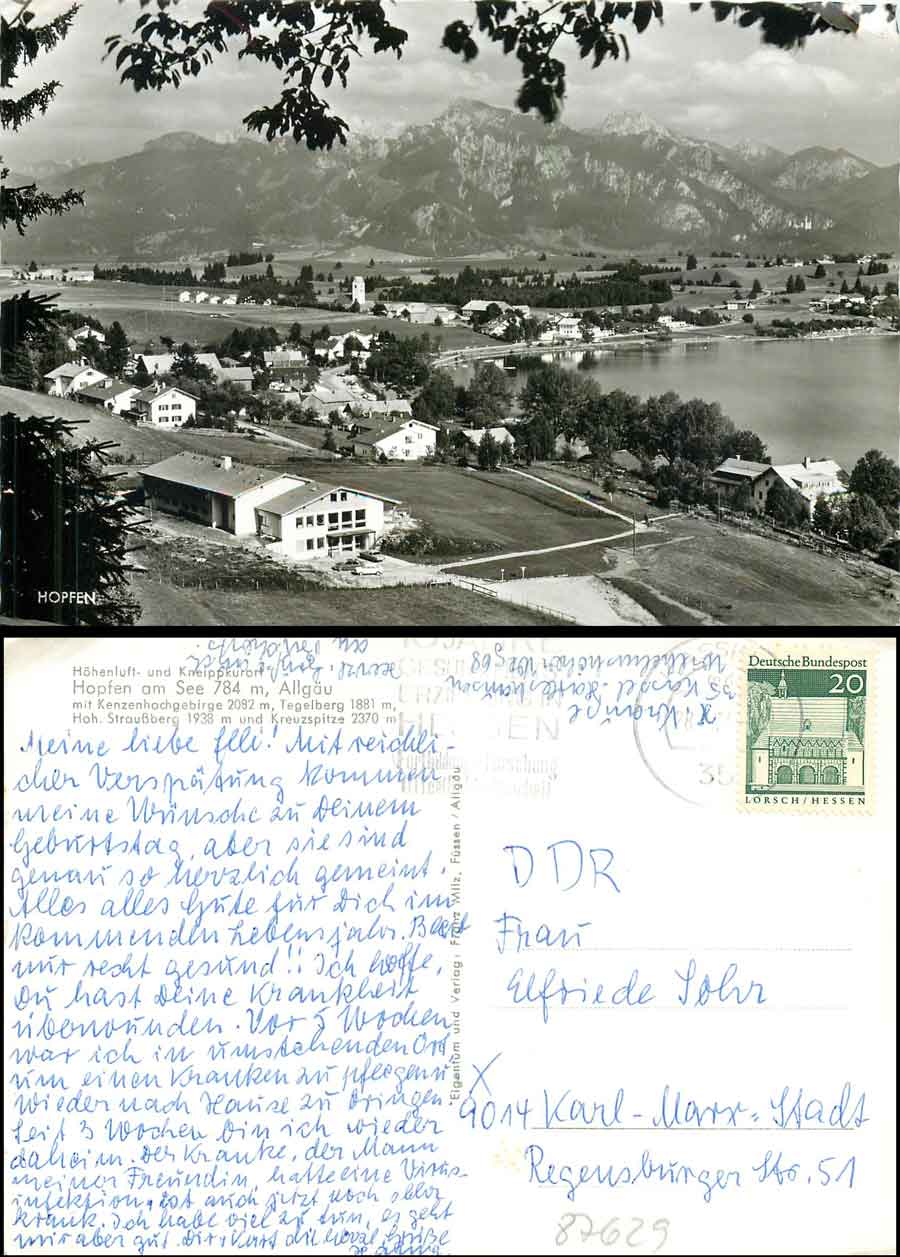 HOPFEN
Höhenluft- und Kneippkurort
Hopfen am See 784 m, Allgäu
mit Kenzenhochgebirge 2082 m, Tegelberg 1881 m,
Hoh. Straußberg 1938 m und Kreuzspitze 2370 m
Meine liebe Elli! Mit reichli-
cher Verspätung kommen
meine Wünsche zu Deinem
Geburtstag, aber sie sind
genau so herzlich gemeint.
Alles alles Gute für Dich im
kommenden Lebensjahr. Bleibt
nur recht gesund!! Ich hoffe,
Du hast Deine Krankheit
überwunden. Vor 5 Wochen
war ich in umstehenden Ort
um einen Kranken zu pflegen u.
wieder nach Hause zu bringen.
Seit 3 Wochen bin ich wieder
daheim. Der Kranke, der Mann
meiner Freundin, hatte eine Virus-
infektion, ist auch jetzt noch sehr
krank. Ich habe viel zu tun, es geht
mir aber gut. Dir u. Kurt die herzl. Grüße
Eigentum und Verlag: Franz Milz, Füssen / Allgäu
35 Kassel-
HESSEN
Deutsche Bundespost
20
LORSCH/HESSEN
DDR
Frau
Elfriede Sohr
X
9014 Karl-Marx-Stadt
Regensburger Str. 51
87629